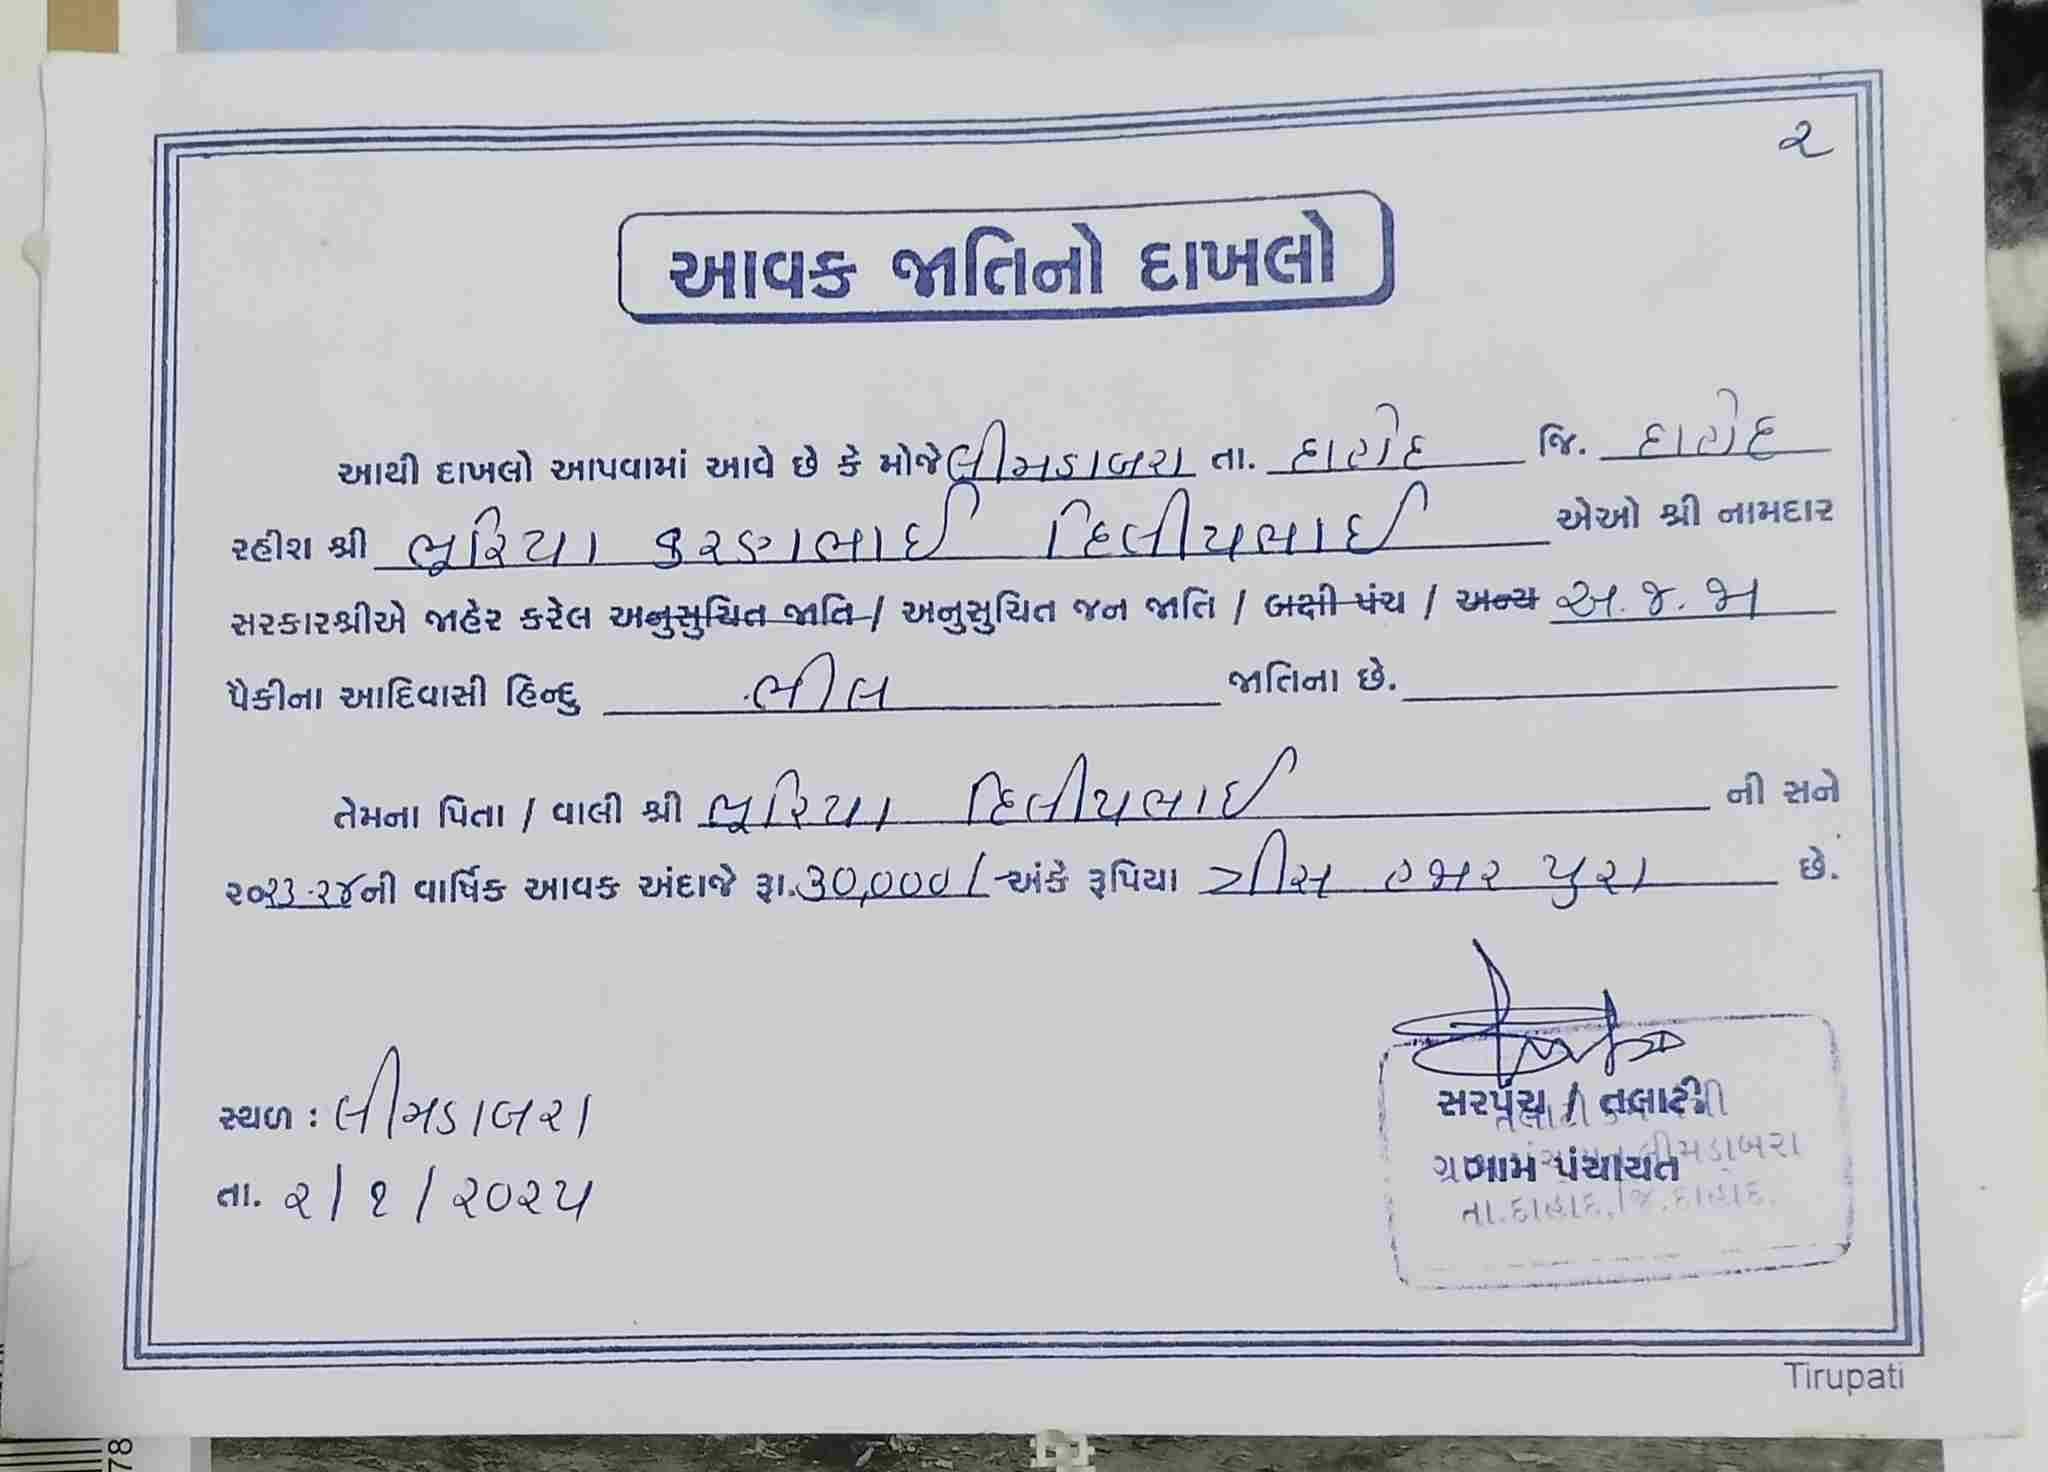 ૨
આવક જાતિનો દાખલો
આથી દાખલો આપવામાં આવે છે કે મોજે લીમડાબરા તા. દાહોદ જિ. દાહોદ
રહીશ શ્રી ભૂરિયા કરણભાઈ દિલીપભાઈ એઓ શ્રી નામદાર
સરકારશ્રીએ જાહેર કરેલ અનુસુચિત જાતિ / અનુસુચિત જન જાતિ / બક્ષી પંચ / અન્ય અ.જ.જા
પૈકીના આદિવાસી હિન્દુ ભીલ જાતિના છે.
તેમના પિતા / વાલી શ્રી ભૂરિયા દિલીપભાઈ ની સને
૨૦૨૩-૨૪ ની વાર્ષિક આવક અંદાજે રૂા. 30,000/- અંકે રૂપિયા ત્રીસ હજાર પુરા છે.
સ્થળ : લીમડાબરા
તા. ૨/૧/૨૦૨૫
સરપંચ / તલાટી
ગ્રામ પંચાયત
લીમડાબરા
તા.દાહોદ, જિ.દાહોદ.
Tirupati
78